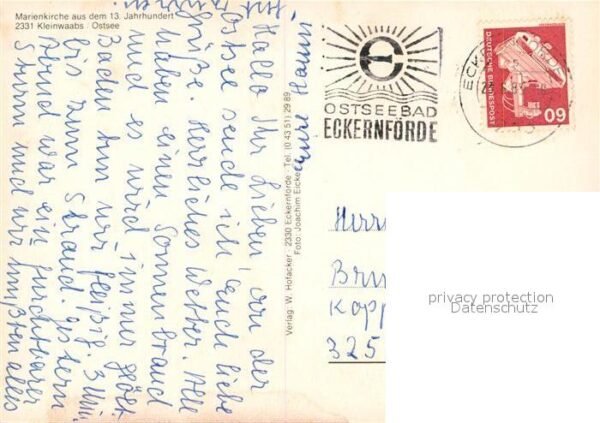 Marienkirche aus dem 13. Jahrhundert
2331 Kleinwaabs / Ostsee
Hallo Ihr Lieben von der
Ostsee sende ich euch liebe
Grüße. Herrliches Wetter. Alle
haben einen Sonnenbrand
und es wird immer geölt
Baden tun wir fleißig. 3 Min.
bis zum Strand. gestern
Abend war ein furchtbarer
Sturm und wir mußten alles
eure Hanni
Verlag: W. Hofacker · 2330 Eckernförde · Tel. (0 43 51) 29 89
Foto: Joachim Eicke
OSTSEEBAD
ECKERNFÖRDE
DEUTSCHE BUNDESPOST
60
Herr
Bru
Kopp
325
privacy protection
Datenschutz